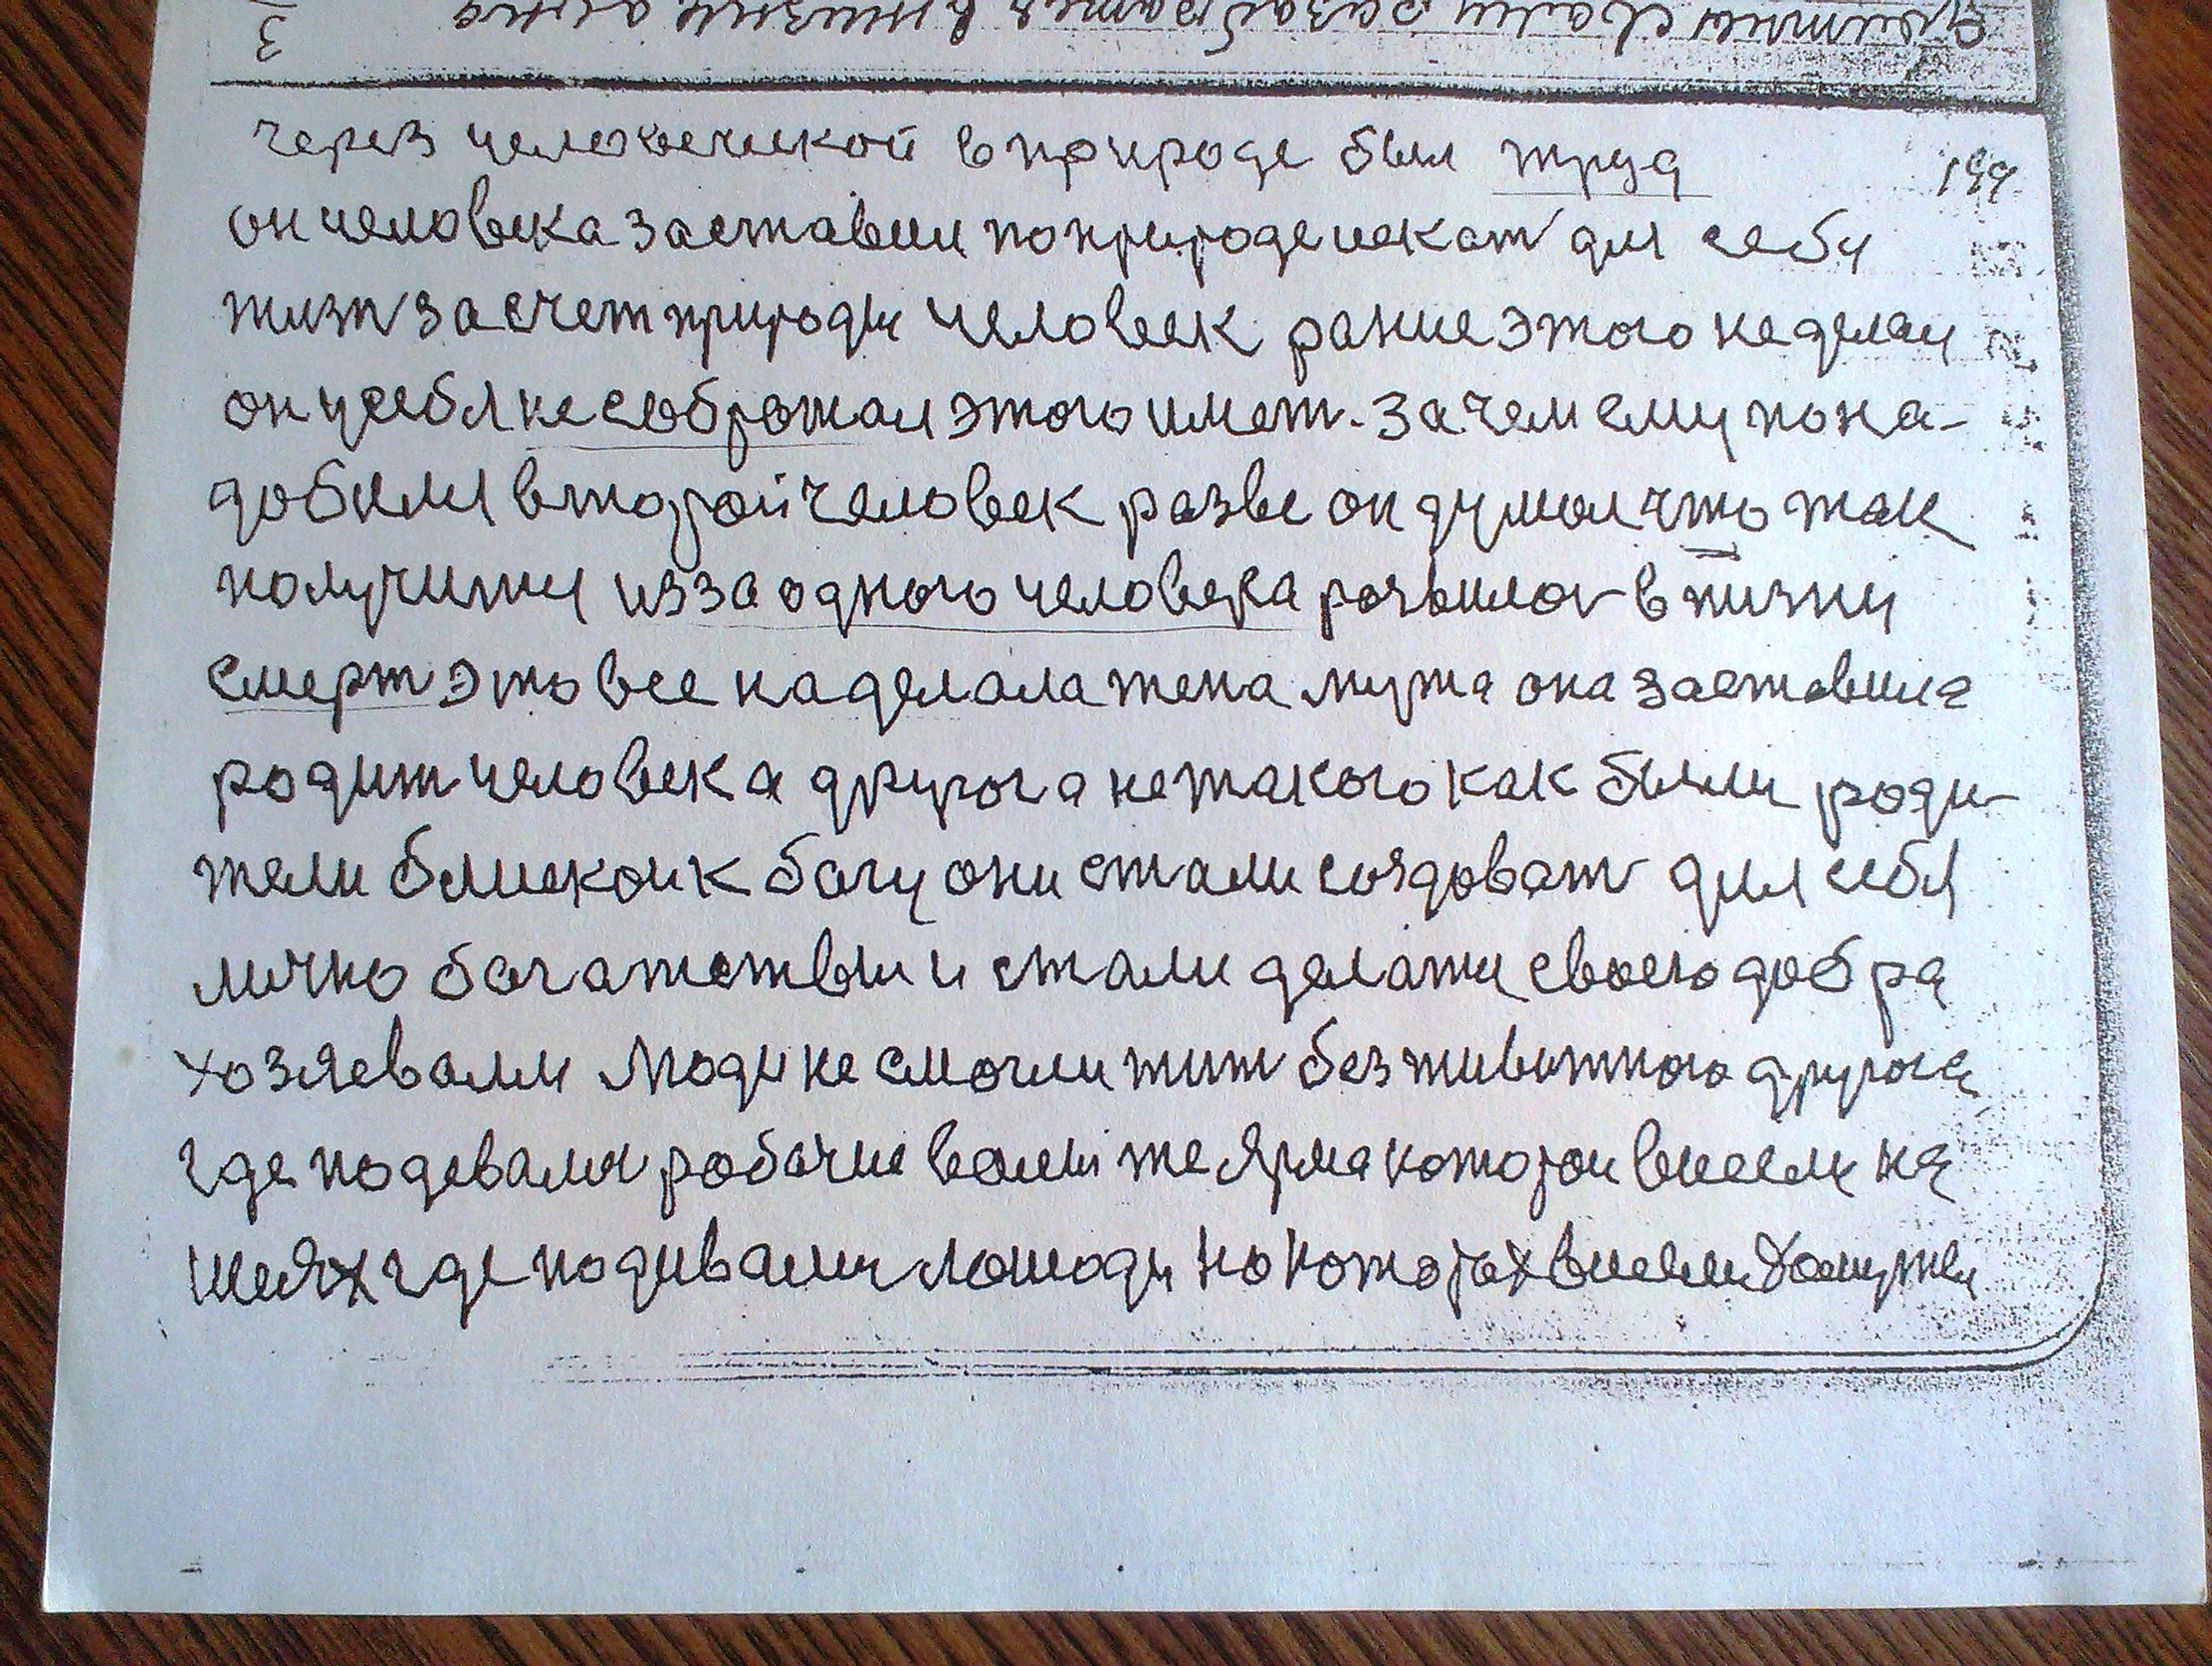 через человеческой в природе был труд
он человека заставил по природе искат для себя
жизн за счет природы человек ранше этого не делал
он у себя не соброжал этого имет. Зачем ему пона-
добился второй человек разве он думал что так
получится из за одного человека розвилос в жизни
смерт это все наделала жена мужа она заставила
родит человека другога не такого как были роди-
тели блискои к богу они стали создоват для себя
лично богатствы и стали делатся своего добра
хозяевами Люди не смогли жит без живытного другога
где подевался робочие волы же Ярма которои висели на
шеях где подивались лошоди на которых висели Хомуты